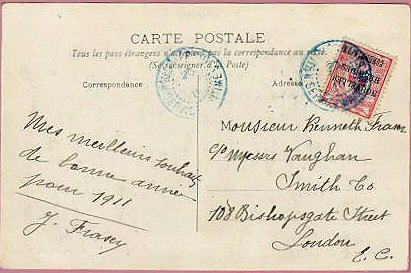 CARTE POSTALE
Tous les pays étrangers n'acceptent pas la correspondance au recto.
(Se renseigner à la Poste)
Correspondance
Adresse
Mes meilleurs souhaits
de bonne année
pour 1911
J. Frasey
Monsieur Kenneth Fraser
c/o Messrs Vaughan
Smith Co
108 Bishopsgate Street
London
E. C.